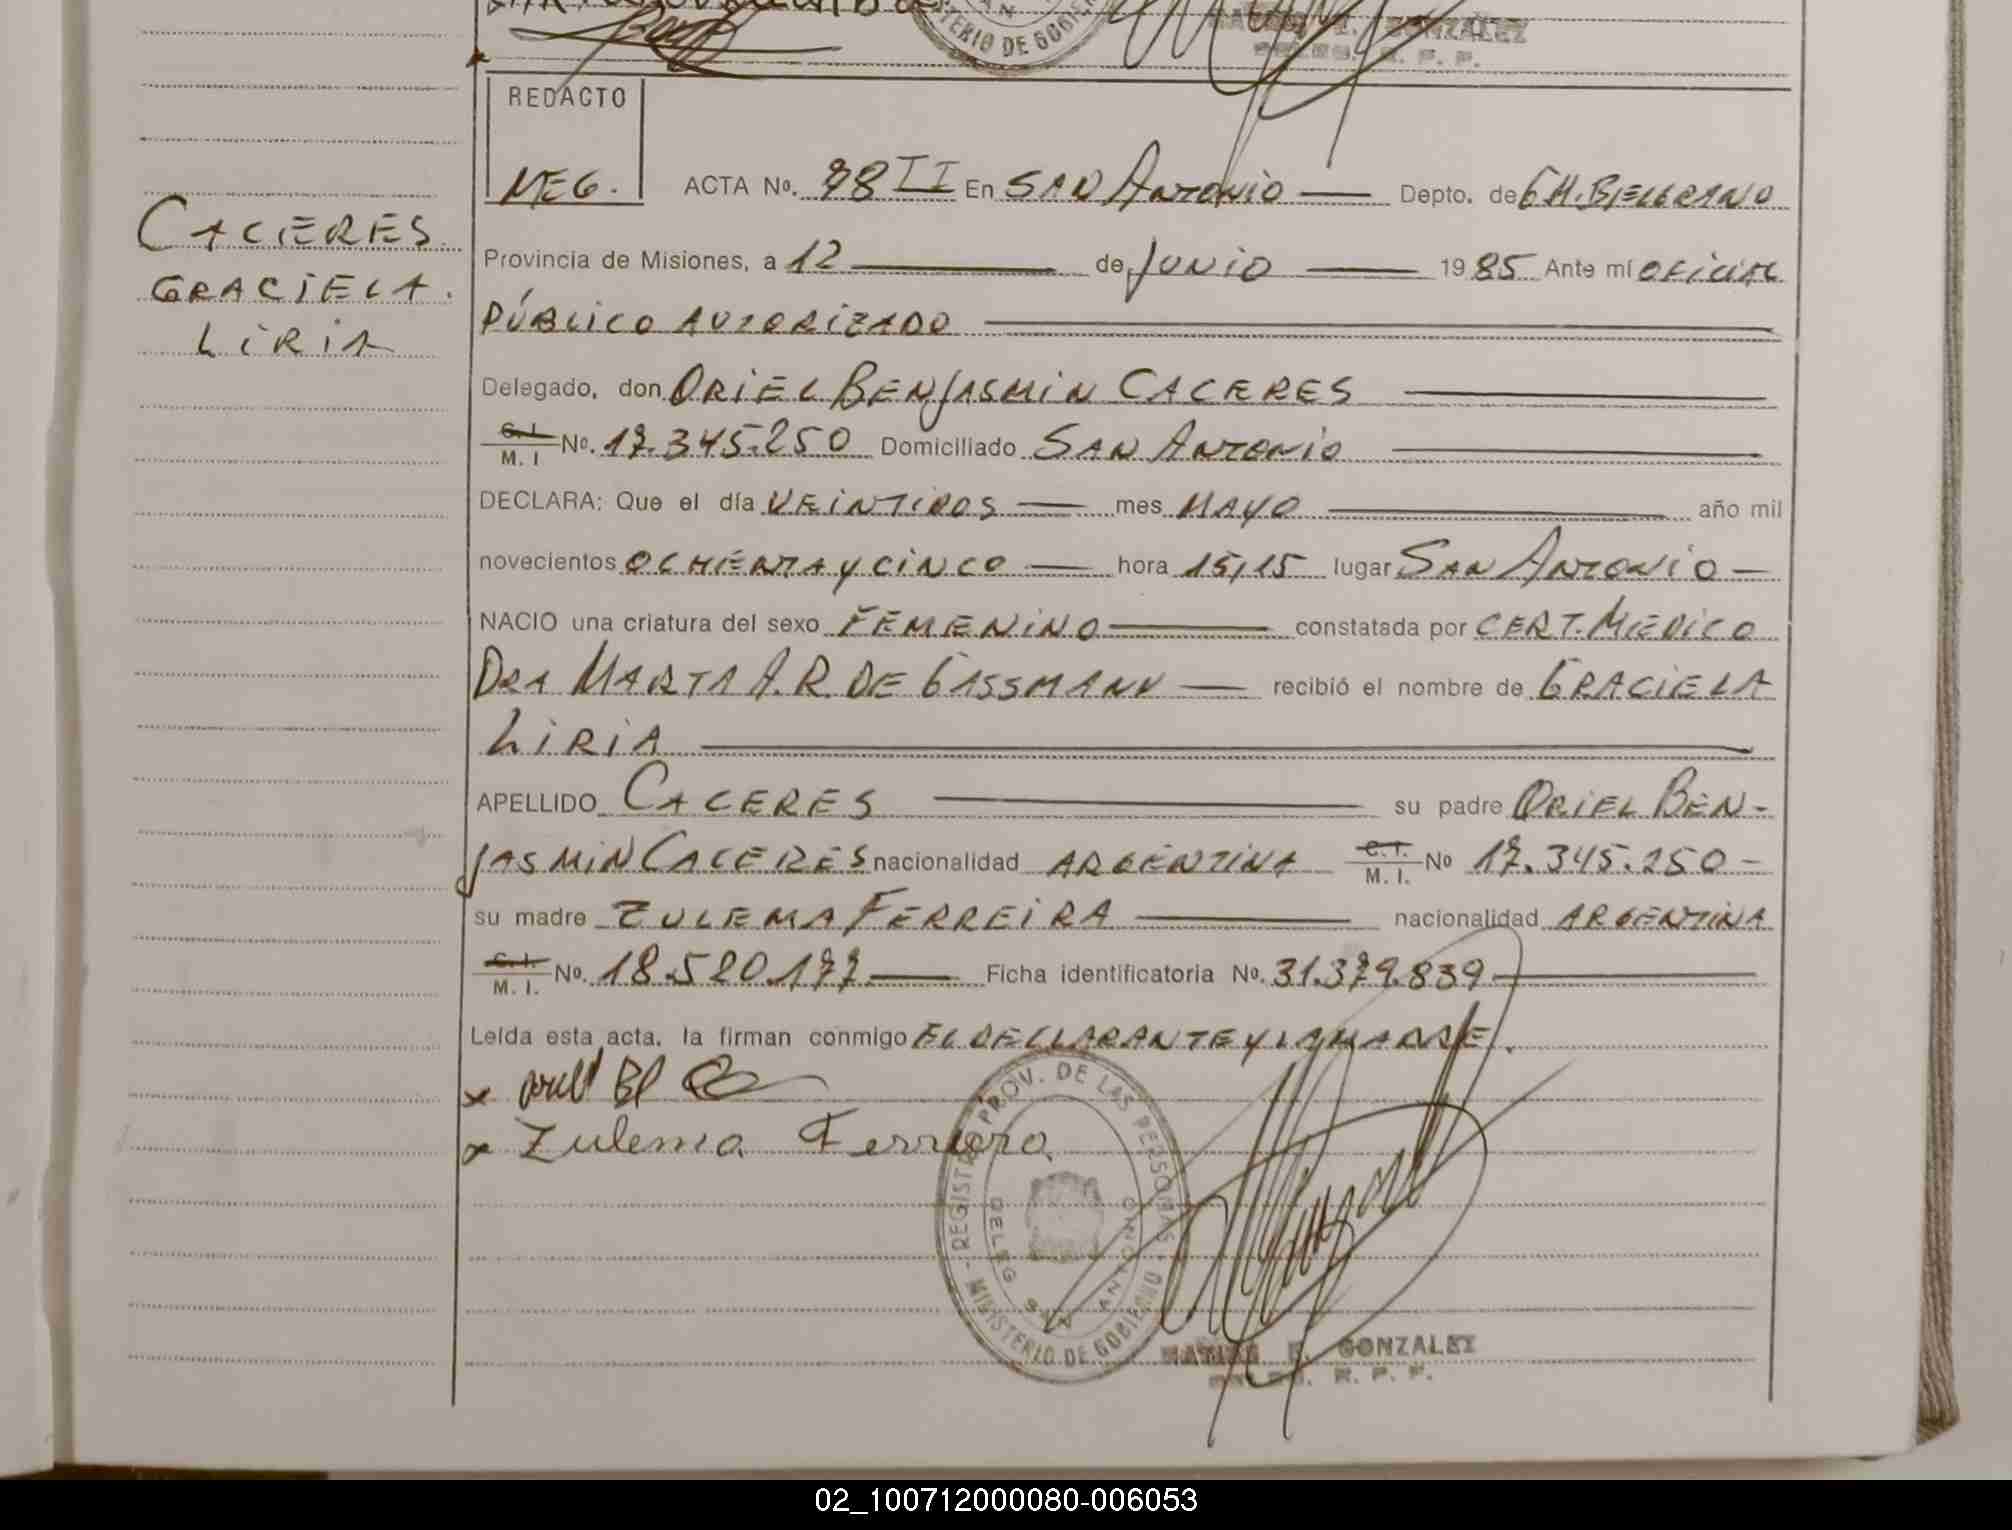 TERIO DE GOBIER
GONZALEZ
R. P. P.
REDACTO
MEG. ACTA Nº. 78 II En SAN ANTONIO Depto. de G M. BELGRANO
CACERES Provincia de Misiones, a 12 de JUNIO 1985 Ante mí OFICIAL
GRACIELA. PÚBLICO AUTORIZADO
LIRIA
Delegado, don ORIEL BENJASMIN CACERES
C. I. M. I Nº. 17.345.250 Domiciliado SAN ANTONIO
DECLARA: Que el día VEINTIDOS mes MAYO año mil
novecientos OCHENTA Y CINCO hora 15,15 lugar SAN ANTONIO
NACIO una criatura del sexo FEMENINO constatada por CERT. MEDICO
DRA MARTA A. R. DE GASSMANN recibió el nombre de GRACIELA
LIRIA
APELLIDO CACERES su padre ORIEL BEN-
JASMIN CACERES nacionalidad ARGENTINA C. I. M. I. Nº 17.345.250-
su madre ZULEMA FERREIRA nacionalidad ARGENTINA
C. I. M. I. Nº. 18.520.177 Ficha identificatoria Nº. 31.379.839
Leída esta acta, la firman conmigo EL DECLARANTE Y LA MADRE.
x
x Zulema Ferreira
REGISTRO PROV. DE LAS PERSONAS - MINISTERIO DE GOBIERNO
DELEG SAN ANTONIO
GONZALEZ
R. P. P.
02_100712000080-006053